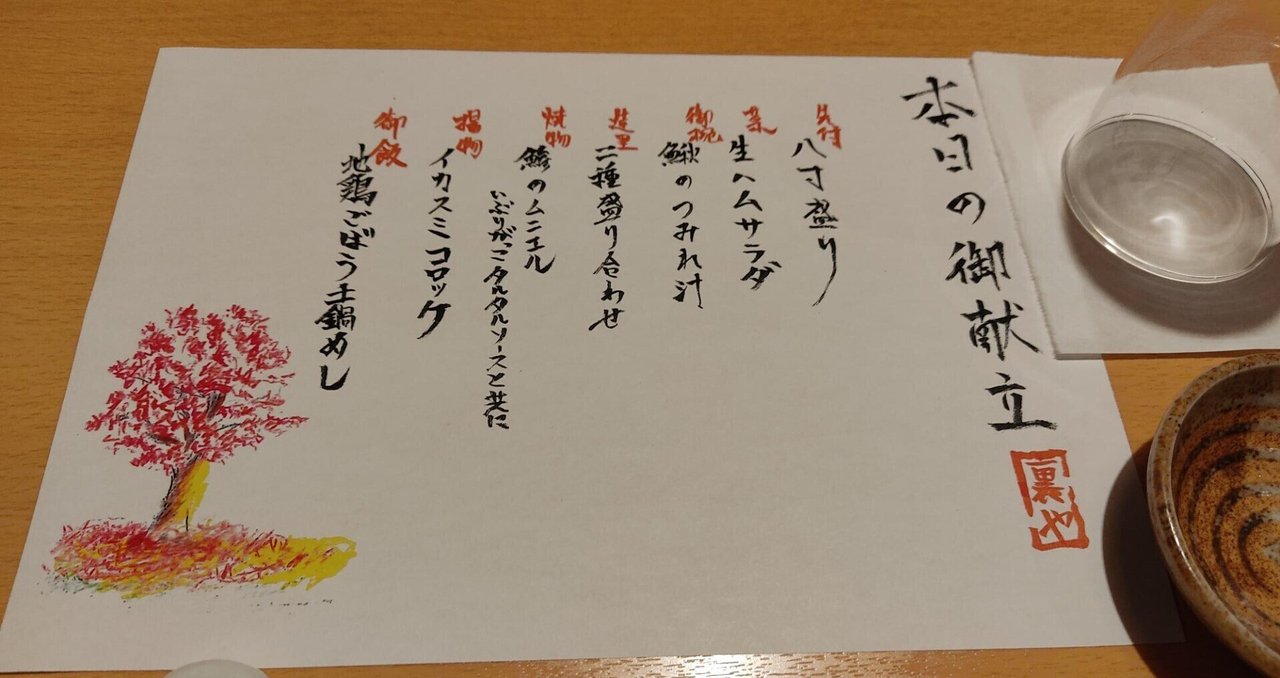 本日の御献立
裏や
先付
八寸盛り
菜
生ハムサラダ
御椀
鰍のつみれ汁
造里
二種盛り合わせ
焼物
鰺のムニエル
いぶりがっこタルタルソースと共に
揚物
イカスミコロッケ
御飯
地鶏ごぼう土鍋めし